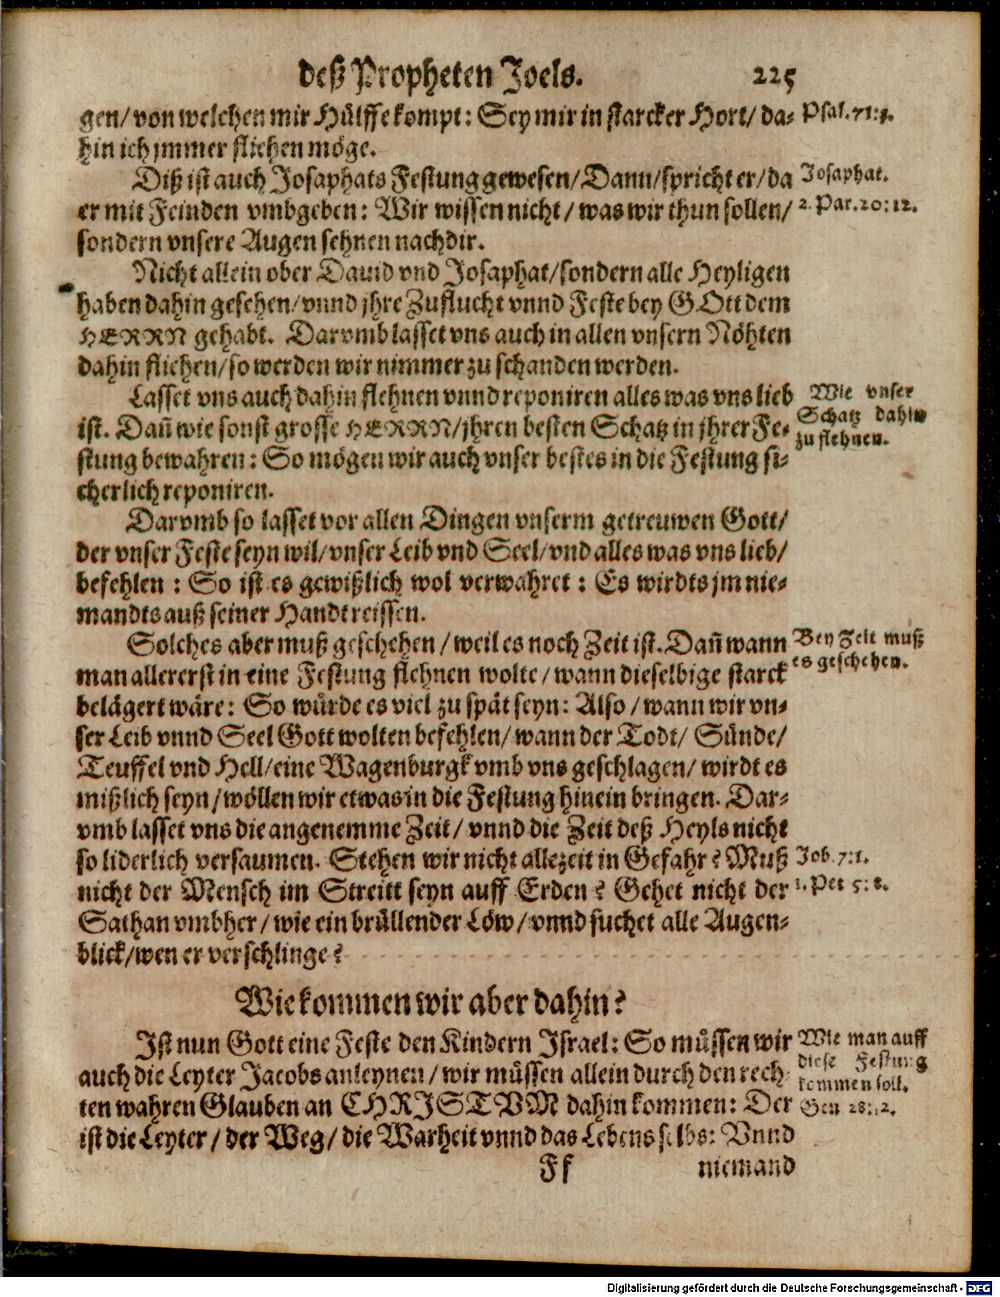 deß Propheten Joels. 225
gen/ von welchen mir Hülffe kompt: Sey mir in starcker Hort/ da- Psal. 71:3.
hin ich jmmer fliehen möge.
Diß ist auch Josaphats Festung gewesen/ Dann/ spricht er/ da Josaphat.
er mit Feinden vmbgeben: Wir wissen nicht/ was wir thun sollen/ 2. Par. 20:12.
sondern vnsere Augen sehnen nach dir.
Nicht allein ober Dauid vnd Josaphat/ sondern alle Heyligen
haben dahin gesehen/ vnnd jhre Zuflucht vnnd Feste bey GOtt dem
HERRN gehabt. Darvmb lasset vns auch in allen vnsern Nöhten
dahin fliehen/ so werden wir nimmer zu schanden werden.
Lasset vns auch dahin flehnen vnnd reponiren alles was vns lieb Wie vnser
ist. Dañ wie sonst grosse HERRN/ jhren besten Schatz in jhrer Fe- Schatz dahin
stung bewahren: So mögen wir auch vnser bestes in die Festung si- zu flehnen.
cherlich reponiren.
Darvmb so lasset vor allen Dingen vnserm getreuwen Gott/
der vnser Feste seyn wil/ vnser Leib vnd Seel/ vnd alles was vns lieb/
befehlen: So ist es gewißlich wol verwahret: Es wirdts jm nie-
mandts auß seiner Handt reissen.
Solches aber muß geschehen/ weil es noch Zeit ist. Dañ wann Bey Zeit muß
man allererst in eine Festung flehnen wolte/ wann dieselbige starck es geschehen.
belägert wäre: So würde es viel zu spät seyn: Also/ wann wir vn-
ser Leib vnnd Seel Gott wolten befehlen/ wann der Todt/ Sünde/
Teuffel vnd Hell/ eine Wagenburgk vmb vns geschlagen/ wirdt es
mißlich seyn/ wöllen wir etwas in die Festung hinein bringen. Dar-
vmb lasset vns die angenemme Zeit/ vnnd die Zeit deß Heyls nicht
so liderlich versaumen. Stehen wir nicht allezeit in Gefahr? Muß Job. 7:1.
nicht der Mensch im Streitt seyn auff Erden? Gehet nicht der 1. Pet 5:8.
Sathan vmbher/ wie ein brüllender Löw/ vnnd suchet alle Augen-
blick/ wen er verschlinge?
Wie kommen wir aber dahin?
Ist nun Gott eine Feste den Kindern Israel: So müssen wir Wie man auff
auch die Leyter Jacobs anleynen/ wir müssen allein durch den rech- diese Festung
ten wahren Glauben an CHRISTVM dahin kommen: Der kommen soll.
ist die Leyter/ der Weg/ die Warheit vnnd das Leben selbs: Vnnd Gen 28:12.
Ff niemand
Digitalisierung gefördert durch die Deutsche Forschungsgemeinschaft - DFG